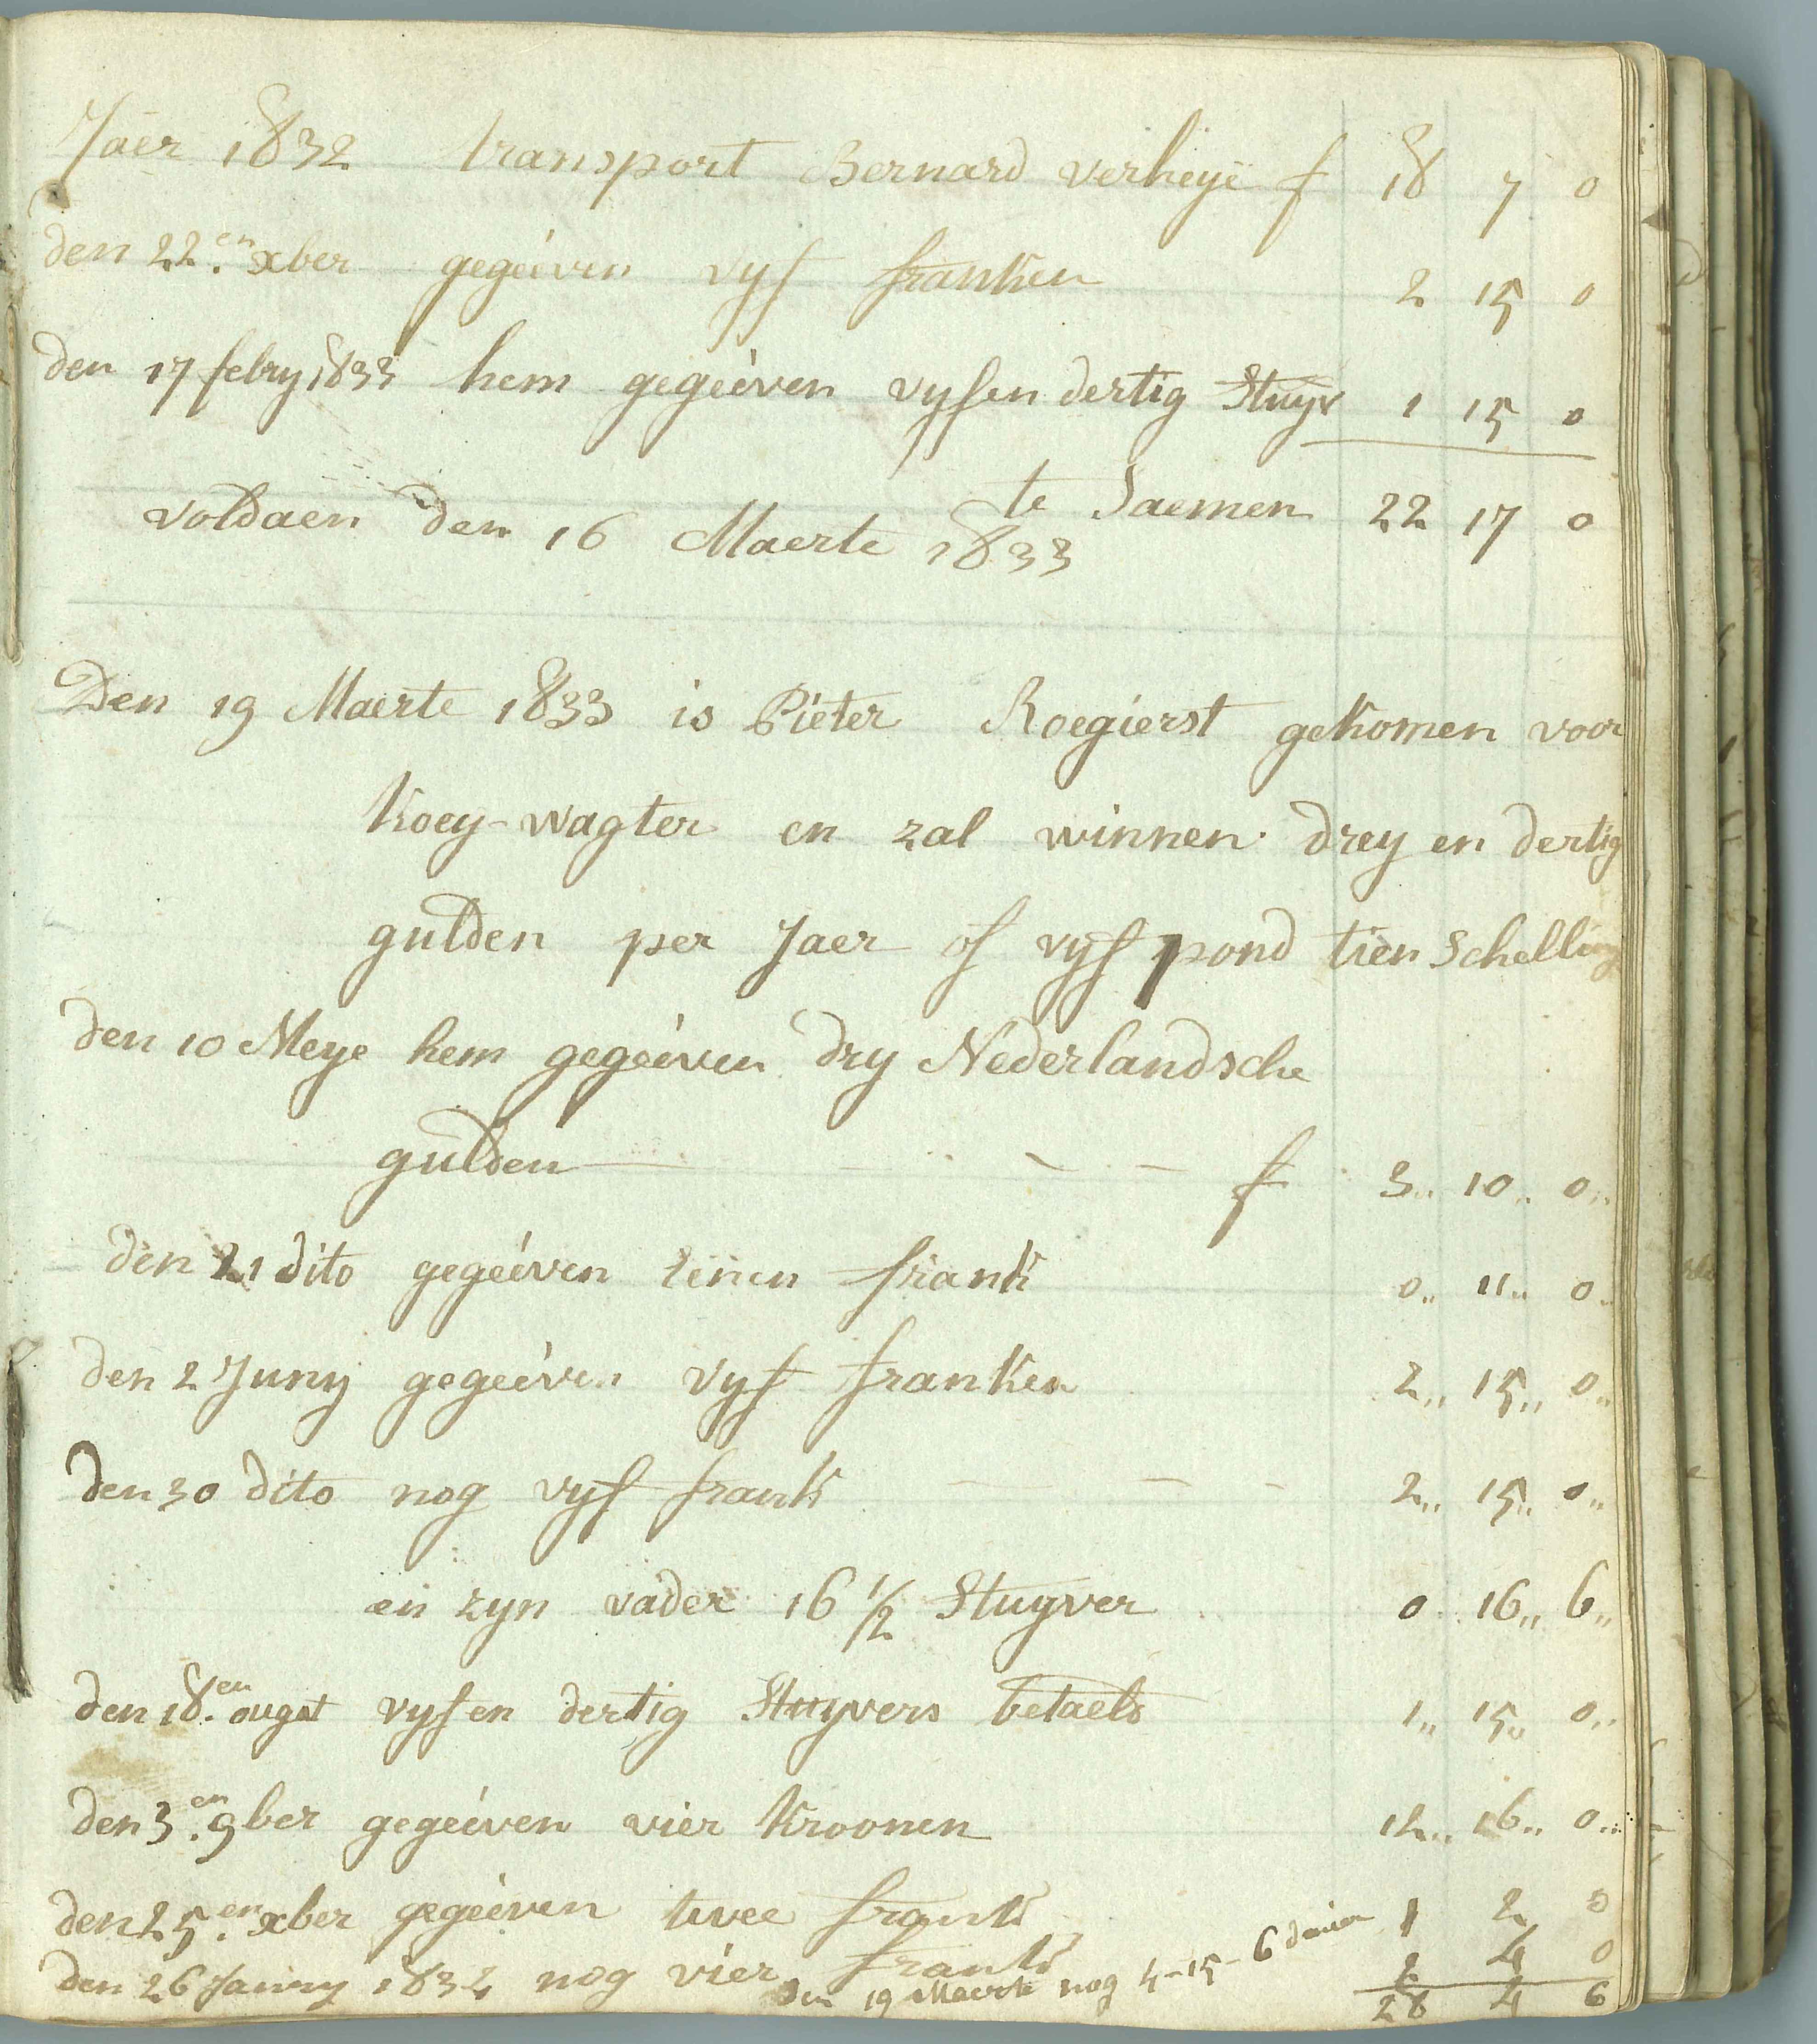 Jaer 1832 transport Bernard verheye f 18 7 0
den 22.en xber gegeéven vyf franken 2 15 0
den 17 febry 1833 hem gegeéven vyfen dertig Stuyv 1 15 0
te Saemen 22 17 0
voldaen den 16 Maerte 1833
Den 19 Maerte 1833 is Pieter Roegierst gekomen voor
Koey-wagter en zal winnen drey en dertig
gulden per Jaer of vyf pond tien Schelling
den 10 Meye hem gegeéven dry Nederlandsche
gulden f 3.. 10.. 0..
den 21 dito gegeéven eenen frank 0.. 11.. 0..
den 2 Juny gegeéven vyf franken 2.. 15.. 0..
den 30 dito nog vyf frank 2.. 15.. 0..
en zyn vader 16 1/2 Stuyver 0 16.. 6..
den 18.en ougst vyfen dertig Stuyvers betaelt 1.. 15.. 0..
den 3.en 9ber gegeéven vier Kroonen 12.. 16.. 0..
den 25.en xber gegeéven twee frank 1 2 0
den 26 Janry 1834 nog vier frank 2 4 0
den 19 Maerte nog 4-15-6
28 4 6